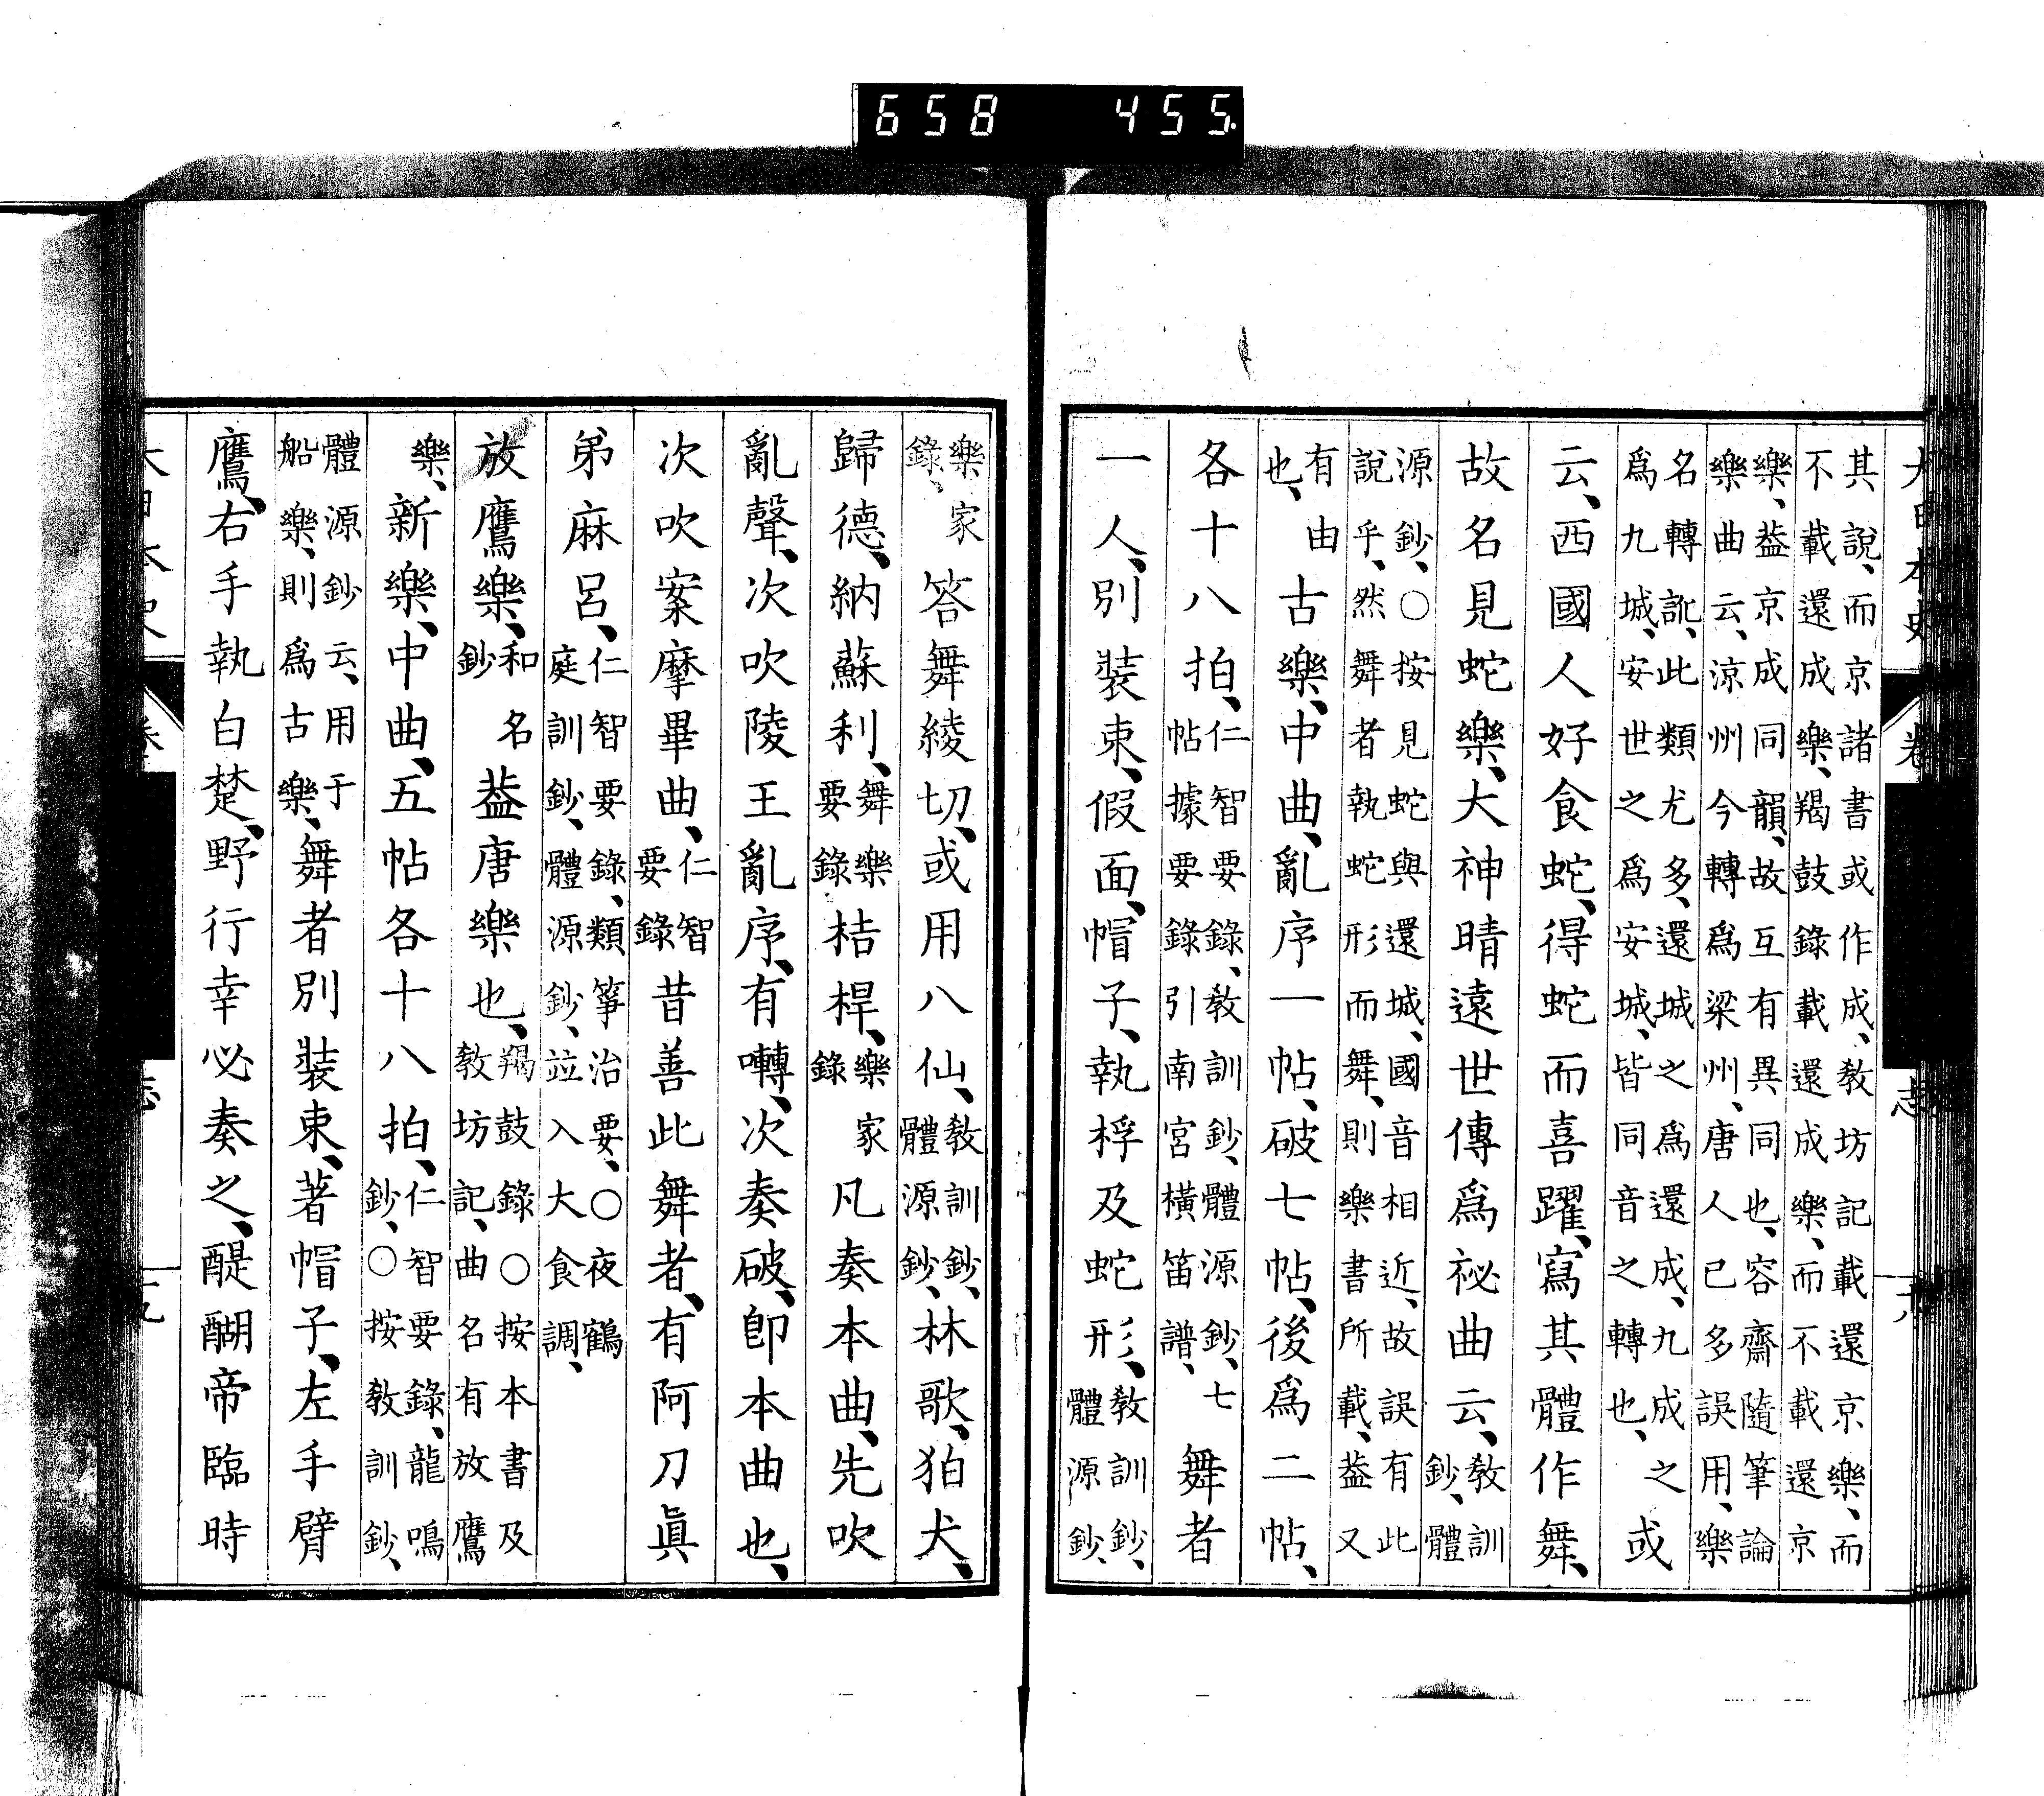 大日本史 卷 志
其說、而京諸書或作成、教坊記載還京樂、而
不載還成樂、羯鼓錄載還成樂、而不載還京
樂、葢京成同韻、故互有異同也、容齋隨筆論
樂曲云、涼州今轉爲梁州、唐人已多誤用、樂
名轉訛、此類尤多、還城之爲還成、九成之
爲九城、安世之爲安城、皆同音之轉也、 或
云、西國人好食蛇、得蛇而喜躍、寫其體作舞、
故名見蛇樂、大神晴遠世傳爲祕曲云、教訓鈔、體
源鈔、○按見蛇與還城、國音相近、故誤有此
說乎、然舞者執蛇形而舞、則樂書所載、葢又
有由也、古樂、中曲、亂序一帖、破七帖、後爲二帖、
各十八拍、仁智要錄、教訓鈔、體源鈔、七帖據要錄引南宮橫笛譜、舞者
一人、別裝束、假面、帽子、執桴及蛇形、教訓鈔、體源鈔、
樂家錄、答舞綾切、或用八仙、教訓鈔、體源鈔、林歌、狛犬、
歸德、納蘇利、舞樂要錄桔桿、樂家錄凡奏本曲、先吹
亂聲、次吹陵王亂序、有囀、次奏破、卽本曲也、
次吹案摩畢曲、仁智要錄昔善此舞者、有阿刀眞
弟麻呂、仁智要錄、類箏治要、○夜鶴庭訓鈔、體源鈔、竝入大食調、
放鷹樂、和名鈔葢唐樂也、羯鼓錄○按本書及教坊記、曲名有放鷹
樂、新樂、中曲、五帖各十八拍、仁智要錄、龍鳴鈔、○按教訓鈔、
體源鈔云、用于船樂、則爲古樂、舞者別裝束、著帽子、左手臂
鷹、右手執白楚、野行幸必奏之、醍醐帝臨時
大日本史 卷 志